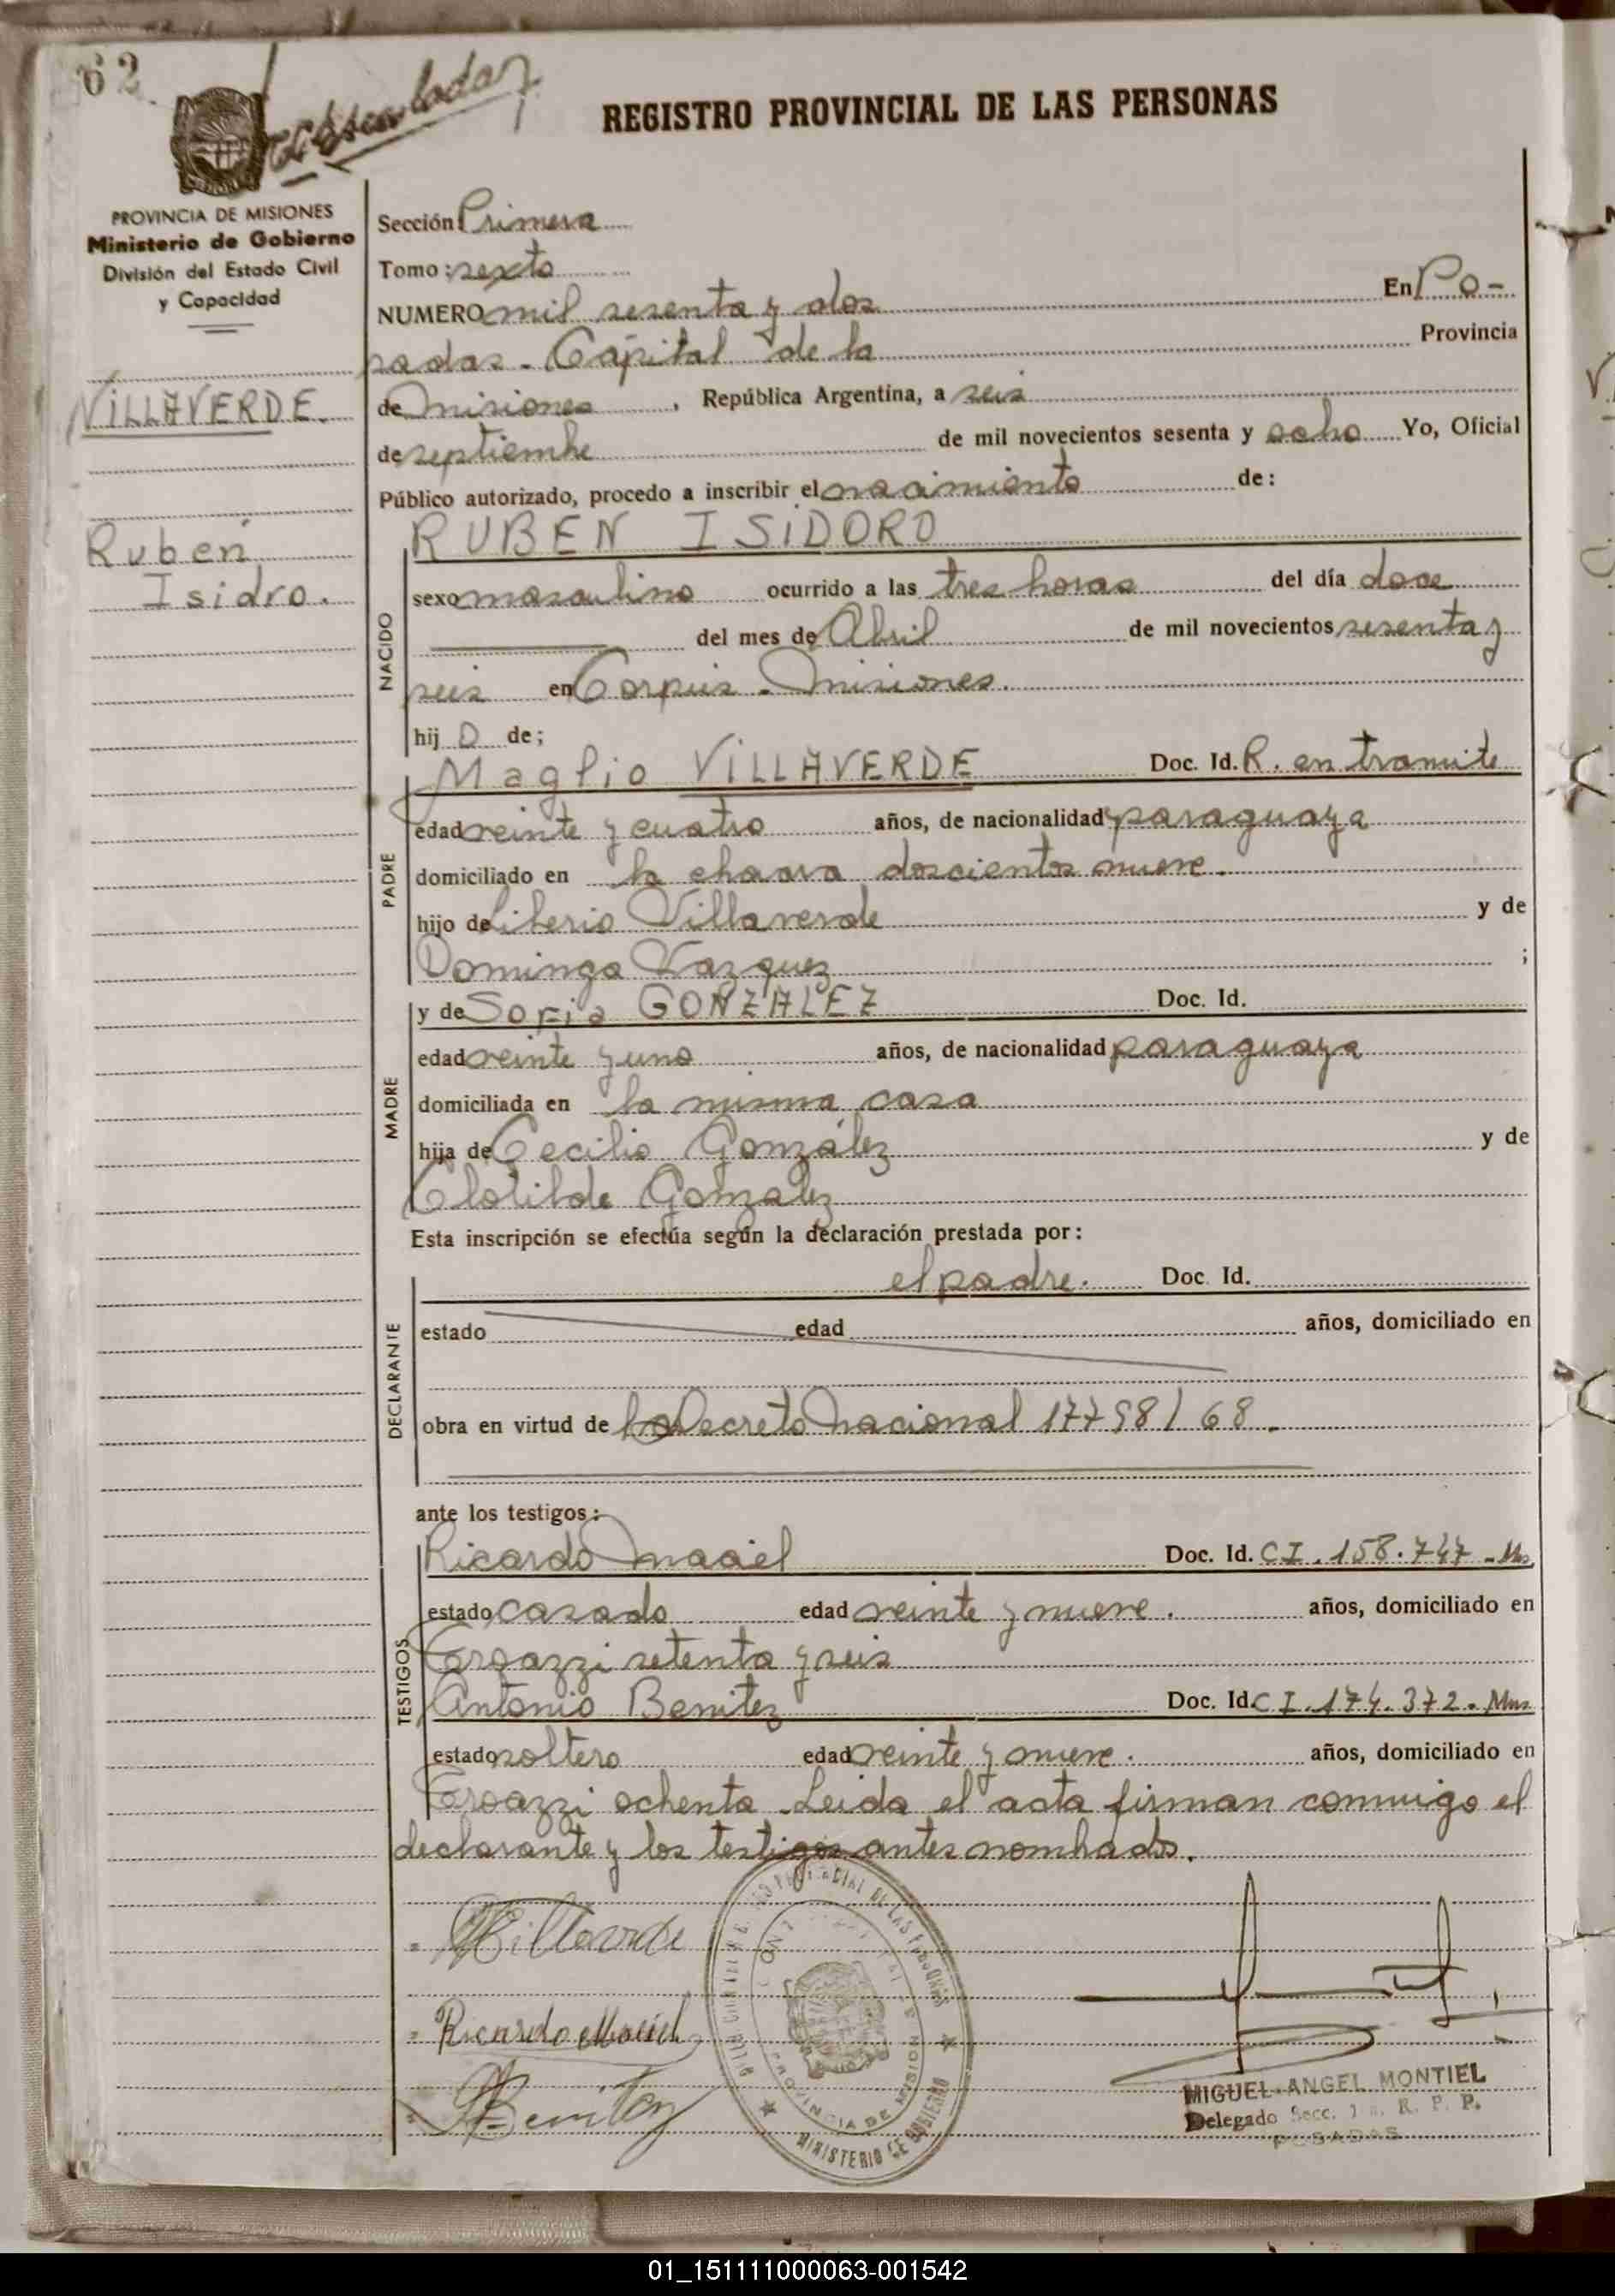 62
REGISTRO PROVINCIAL DE LAS PERSONAS
PROVINCIA DE MISIONES
Ministerio de Gobierno
División del Estado Civil
y Capacidad
VILLAVERDE.
Ruben
Isidro.
Sección Primera
Tomo: sexto
NUMERO mil sesenta y dos En Po-
sadas - Capital de la Provincia
de Misiones, República Argentina, a seis
de septiembre de mil novecientos sesenta y ocho Yo, Oficial
Público autorizado, procedo a inscribir el nacimiento de:
RUBEN ISIDORO
NACIDO
sexo masculino ocurrido a las tres horas del día doce
del mes de Abril de mil novecientos sesenta y
seis en Corpus - Misiones.
hij o de;
Maglio VILLAVERDE Doc. Id. R. en tramite
PADRE
edad veinte y cuatro años, de nacionalidad paraguaya
domiciliado en la chacra doscientos nueve.
hijo de Liberio Villaverde y de
Dominga Vazquez ;
y de Sofia GONZALEZ Doc. Id.
MADRE
edad veinte y uno años, de nacionalidad paraguaya
domiciliada en la misma casa
hija de Cecilio González y de
Clotilde Gonzalez
Esta inscripción se efectúa según la declaración prestada por:
el padre. Doc. Id.
DECLARANTE
estado edad años, domiciliado en
obra en virtud de Decreto Nacional 17798/68.
ante los testigos:
TESTIGOS
Ricardo Maciel Doc. Id. CI. 158.747 - Mns
estado casado edad veinte y nueve. años, domiciliado en
setenta y seis
Antonio Benitez Doc. Id. CI. 174.372 - Mns
estado soltero edad veinte y nueve. años, domiciliado en
ochenta - Leida el acta firman conmigo el
declarante y los testigos antes nombrados.
Villaverde
Ricardo Maciel
Benitez
PROVINCIA DE MISIONES
MINISTERIO DE GOBIERNO
MIGUEL ANGEL MONTIEL
Delegado Secc. 1a. R. P. P.
POSADAS
01_151111000063-001542